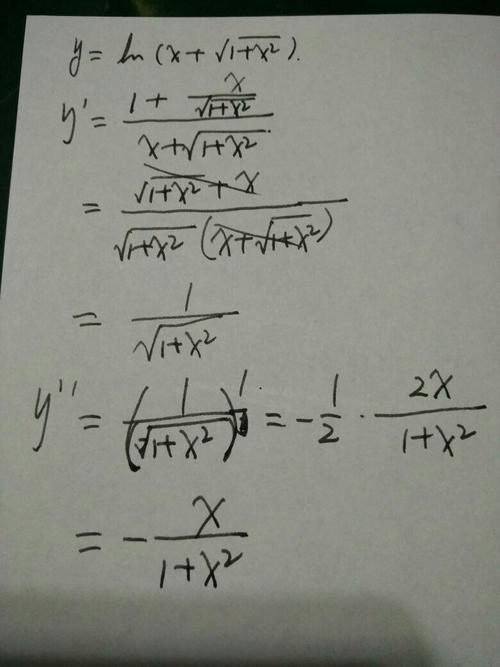 y = ln (x + √(1+x²)).
y' = (1 + x/√(1+x²)) / (x+√(1+x²))
= (√(1+x²) + x) / (√(1+x²) (x+√(1+x²)))
= 1/√(1+x²)
y'' = (1/√(1+x²))' = -1/2 · 2x/(1+x²)
= - x/(1+x²)